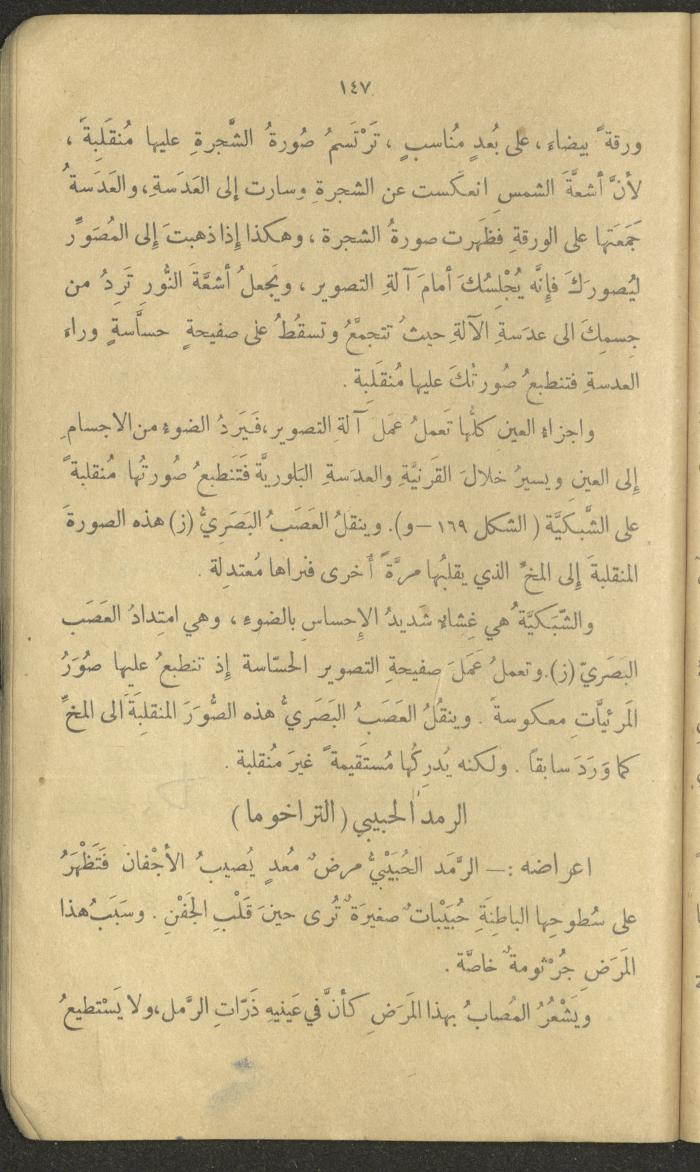 ١٤٧
ورقةً بيضاء، على بُعدٍ مُناسبٍ ، تَرْتَسمُ صُورةُ الشَّجرةِ عليها مُنقَلِبةً ،
لأنَّ أشعَّةَ الشمسِ انعكَست عن الشجرةِ وسارت إلى العَدَسةِ، والعَدَسةُ
جَمَعَتها على الورقةِ فظَهرت صورةُ الشجرة ، وهكذا إِذا ذهبتَ إِلى المُصَوِّر
ليُصورَكَ فإِنَّه يُجْلِسُكَ أمامَ آلةِ التصوير ، ويَجعلُ أشعَّةَ النُّورِ تَرِدُ من
جِسمِكَ الى عدَسةِ الآلةِ حيثُ تتجمَّعُ وتسقُطُ على صفيحةٍ حساَّسةٍ وراء
العدسةِ فتنطبعُ صُورتُكَ عليها مُنقَلِبة .
واجزاء العين كلُّها تَعملُ عمَلَ آلةِ التصوير، فَيَرِدُ الضوء من الاجسامِ
إِلى العينِ ويسيرُ خلالَ القَرنيَّةِ والعدَسةِ البَلوريَّة فتَنطبعُ صُورتُها مُنقلبةً
على الشَّبكيَّة ( الشكل ١٦٩ – و). وينقلُ العَصَبُ البَصَريُّ (ز) هذه الصورةَ
المنقلبةَ إِلى المخِّ الذي يقلبُها مرَّةً أُخرى فنراها مُعتدِلة .
والشّبَكيَّةُ هي غِشاء شديدُ الإِحساسِ بالضوء ، وهي امتِدادُ العَصَب
البَصَريّ (ز). وتعملُ عَمَلَ صفيحةِ التصوير الحسّاسة إِذ تنطبعُ عليها صُوَرُ
المَرئيَّاتِ معكوسةً . وينقُلُ العَصَبُ البَصَريُّ هذه الصُّوَرَ المنقلِبَةَ الى المخِّ
كما وَرَدَ سابقاً . ولكنه يُدرِكُها مُستَقيمةً غيرَ مُنقلبة .
الرمد الحبيبي ( التراخوما )
اعراضه : – الرَّمَد الحُبَيْبيُّ مرضٌ مُعدٍ يُصيبُ الأجْفان فَتَظْهَرُ
على سُطوحِها الباطِنَةِ حُبَيْباتٌ صغيرَةٌ تُرى حينَ قَلْبِ الجَفنِ . وسَبَبُ هذا
المَرَضِ جُرْثومةٌ خاصَّة .
ويَشْعُرُ المُصابُ بهذا المَرَضِ كأنَّ في عَينيهِ ذَرّاتِ الرَّمل، ولا يَسْتطيعُ